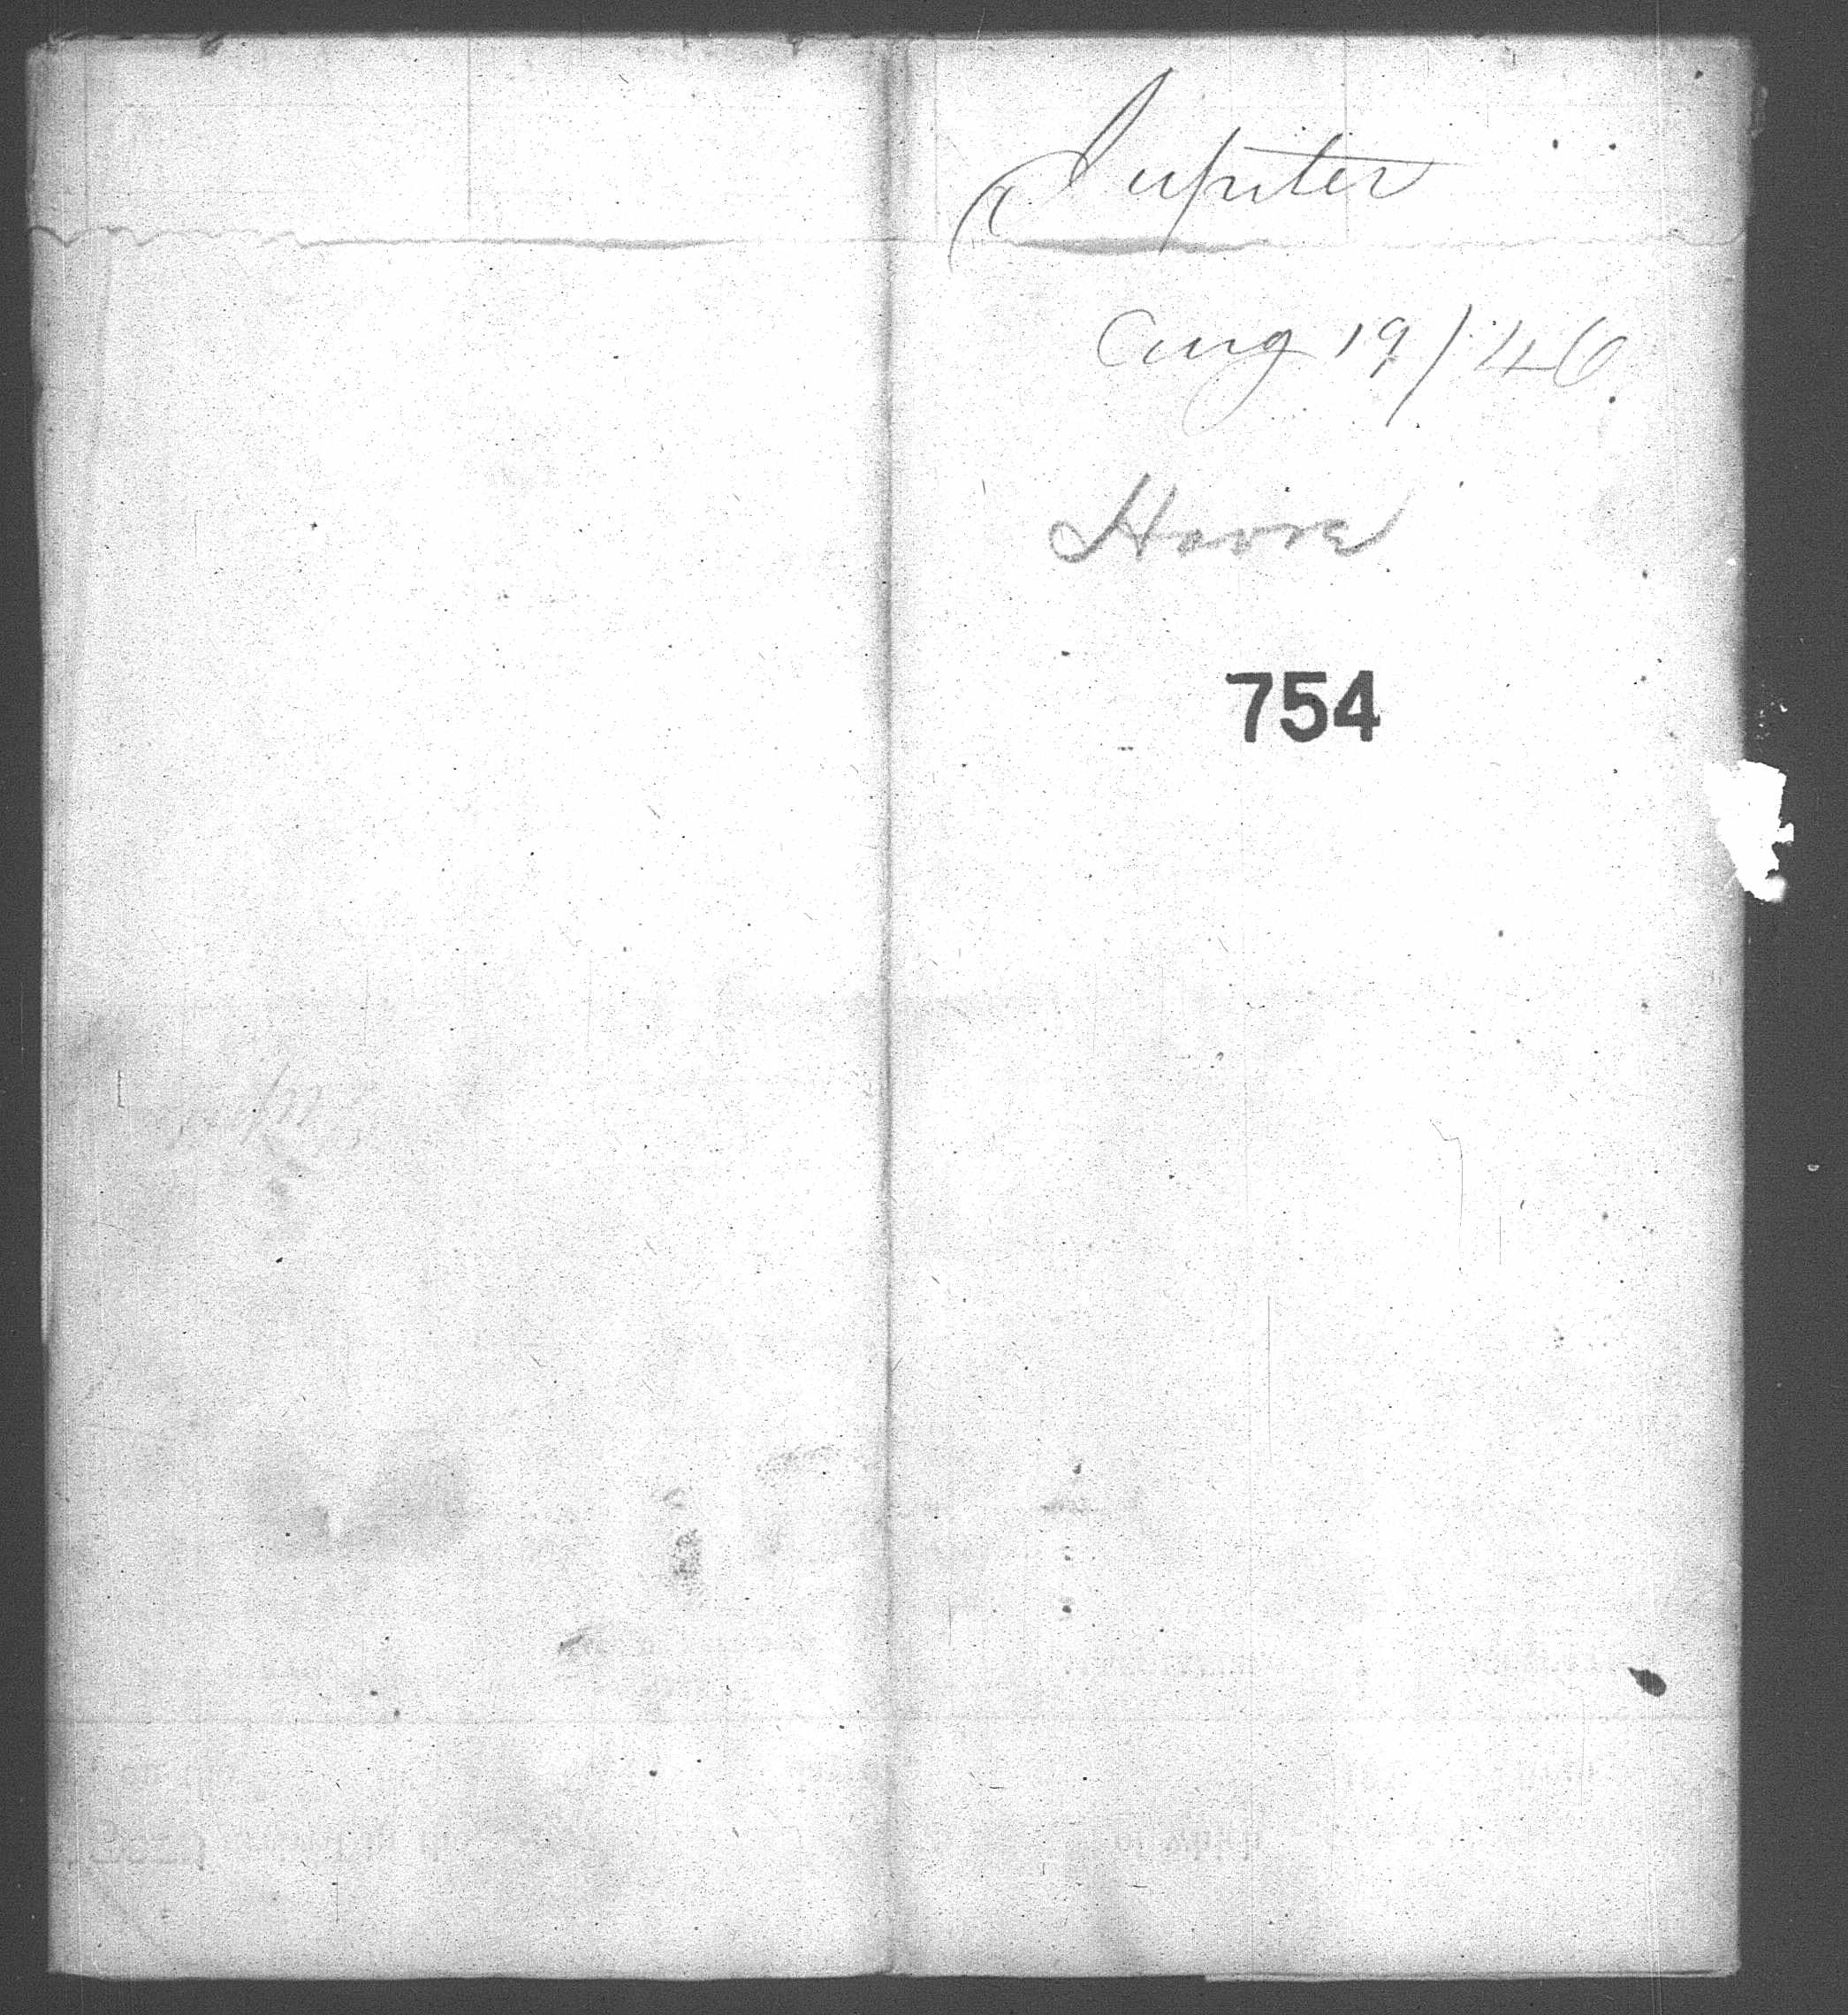 Jupiter
Aug 19/46
Havre
754